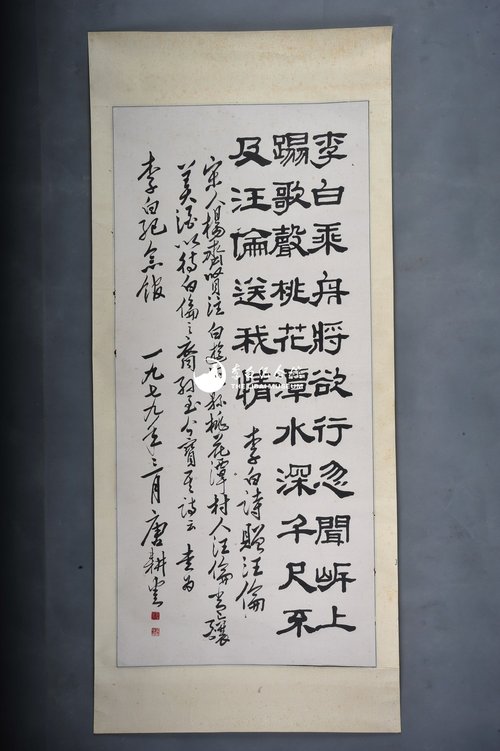 李白乘舟將欲行忽聞岸上
蹋歌聲桃花潭水深千尺不
及汪倫送我情 李白詩贈汪倫
宋人楊齊賢注白遊涇縣桃花潭村人汪倫常醞
美酒以待白倫之裔孫至今寶其詩云 書為
李白紀念館 一九七九年三月 唐耕
李白纪念馆
THE LIBAI MUSEUM